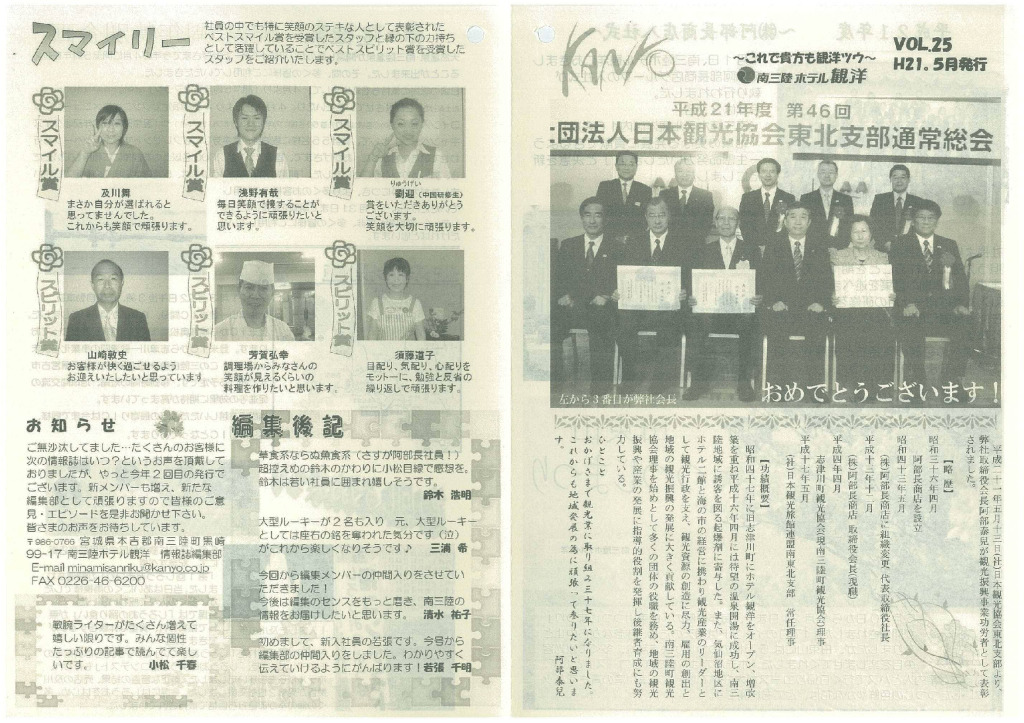 スマイリー
社員の中でも特に笑顔のステキな人として表彰された
ベストスマイル賞を受賞したスタッフと縁の下の力持ち
として活躍していることでベストスピリット賞を受賞した
スタッフをご紹介いたします。
スマイル賞
及川舞
まさか自分が選ばれると
思ってませんでした。
これからも笑顔で頑張ります。
スマイル賞
浅野有哉
毎日笑顔で接することが
できるように頑張りたいと
思います。
スマイル賞
りゅうげい
劉迎(中国研修生)
賞をいただきありがとう
ございます。
笑顔を大切に頑張ります。
スピリット賞
山崎敦史
お客様が快く過ごせるよう
お迎えいたしたいと思っています
スピリット賞
芳賀弘幸
調理場からみなさんの
笑顔が見えるくらいの
料理を作りたいと思います。
スピリット賞
須藤道子
目配り、気配り、心配りを
モットーに、勉強と反省の
繰り返しで頑張ります。
お知らせ
ご無沙汰してました…たくさんのお客様に
次の情報誌はいつ?というお声を頂戴して
おりましたが、やっと今年2回目の発行で
ございます。新メンバーも増え、新たな
編集部として頑張りますので皆様のご意
見・エピソードを是非お聞かせ下さい。
皆さまのお声をお待ちしています。
〒986-0766 宮城県本吉郡南三陸町黒崎
99-17 南三陸ホテル観洋 情報誌編集部
E-mail minamisanriku@kanyo.co.jp
FAX 0226-46-6200
敏腕ライターがたくさん増えて
嬉しい限りです。みんな個性
たっぷりの記事で読んでて楽し
いです。 小松 千春
編集後記
草食系ならぬ魚食系(さすが阿部長社員!)
超控えめの鈴木のかわりに小松目線で感想を。
鈴木は若い社員に囲まれ嬉しそうです。
鈴木 浩明
大型ルーキーが2名も入り 元、大型ルーキー
としては座右の銘を奪われた気分です(泣)
がこれから楽しくなりそうです♪ 三浦 希
今回から編集メンバーの仲間入りをさせてい
ただきました!
今後は編集のセンスをもっと磨き、南三陸の
情報をお届けしたいと思います。 清水 祐子
初めまして、新入社員の若張です。今号から
編集部の仲間入りをしました。わかりやすく
伝えていけるようにがんばります!若張 千明
KANYO
～これで貴方も観洋ツウ～
南三陸ホテル観洋
VOL.25
H21.5月発行
平成21年度 第46回
団法人日本観光協会東北支部通常総会
左から3番目が弊社会長
おめでとうございます!
平成二十一年五月十三日(社)日本観光協会東北支部より、
弊社取締役会長阿部泰兒が観光振興事業功労者として表彰
されました。
【略 歴】
昭和三十六年四月
阿部長商店を設立
昭和四十三年五月
(株)阿部長商店に組織変更 代表取締役社長
平成十三年十二月
(株)阿部長商店 取締役会長(現職)
平成四年四月
志津川町観光協会(現南三陸町観光協会)理事
平成十七年五月
(社)日本観光旅館連盟南東北支部 常任理事
【功績概要】
昭和四十七年に旧志津川町にホテル観洋をオープン、増改
築を重ね平成十六年四月には待望の温泉開湯に成功し、南三
陸地域に誘客を図る起爆剤に寄与した。また、気仙沼地区に
ホテル二館と海の市の経営に携わり観光産業のリーダーと
して観光行政を支え、観光資源の創造に尽力、雇用の創出と
地域の観光振興の発展に大きく貢献している。南三陸町観光
協会理事を始めとして多くの団体の役職を務め、地域の観光
振興や産業の発展に指導的役割を発揮し後継者育成にも努
力している。
ひとこと
おかげさまで観光業に取り組み三十七年になりました。
これからも地域発展の為に頑張って参りたいと思いま
す。 阿部泰兒